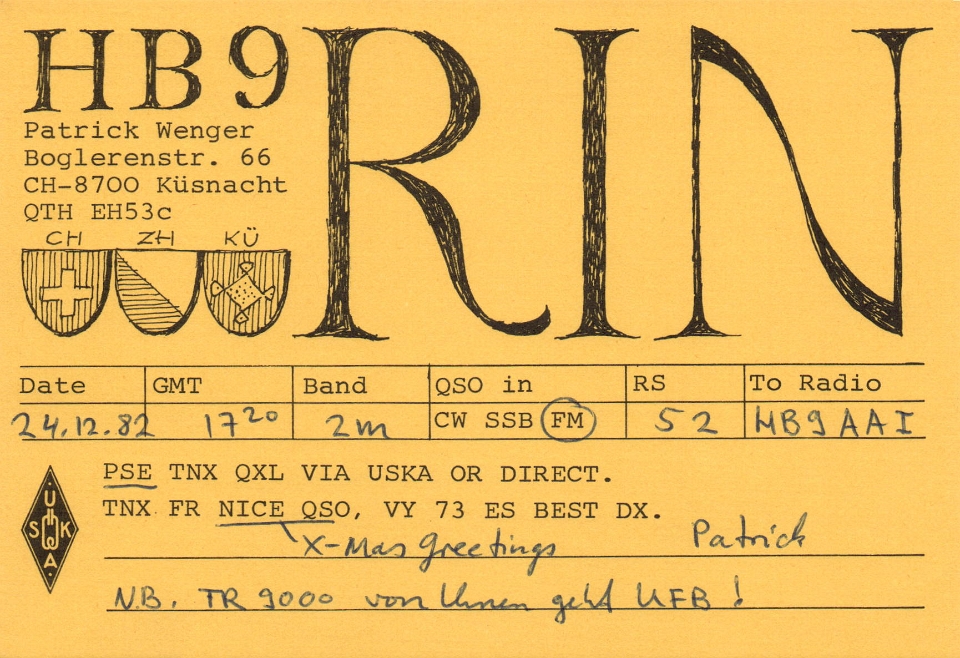 HB9RIN
Patrick Wenger
Boglerenstr. 66
CH-8700 Küsnacht
QTH EH53c
CH ZH KÜ
Date GMT Band QSO in RS To Radio
24.12.82 17²⁰ 2m CW SSB FM 52 HB9AAI
PSE TNX QXL VIA USKA OR DIRECT.
TNX FR NICE QSO, VY 73 ES BEST DX.
X-Mas Greetings Patrick
N.B. TR 9000 von Ihnen geht UFB!
USKA